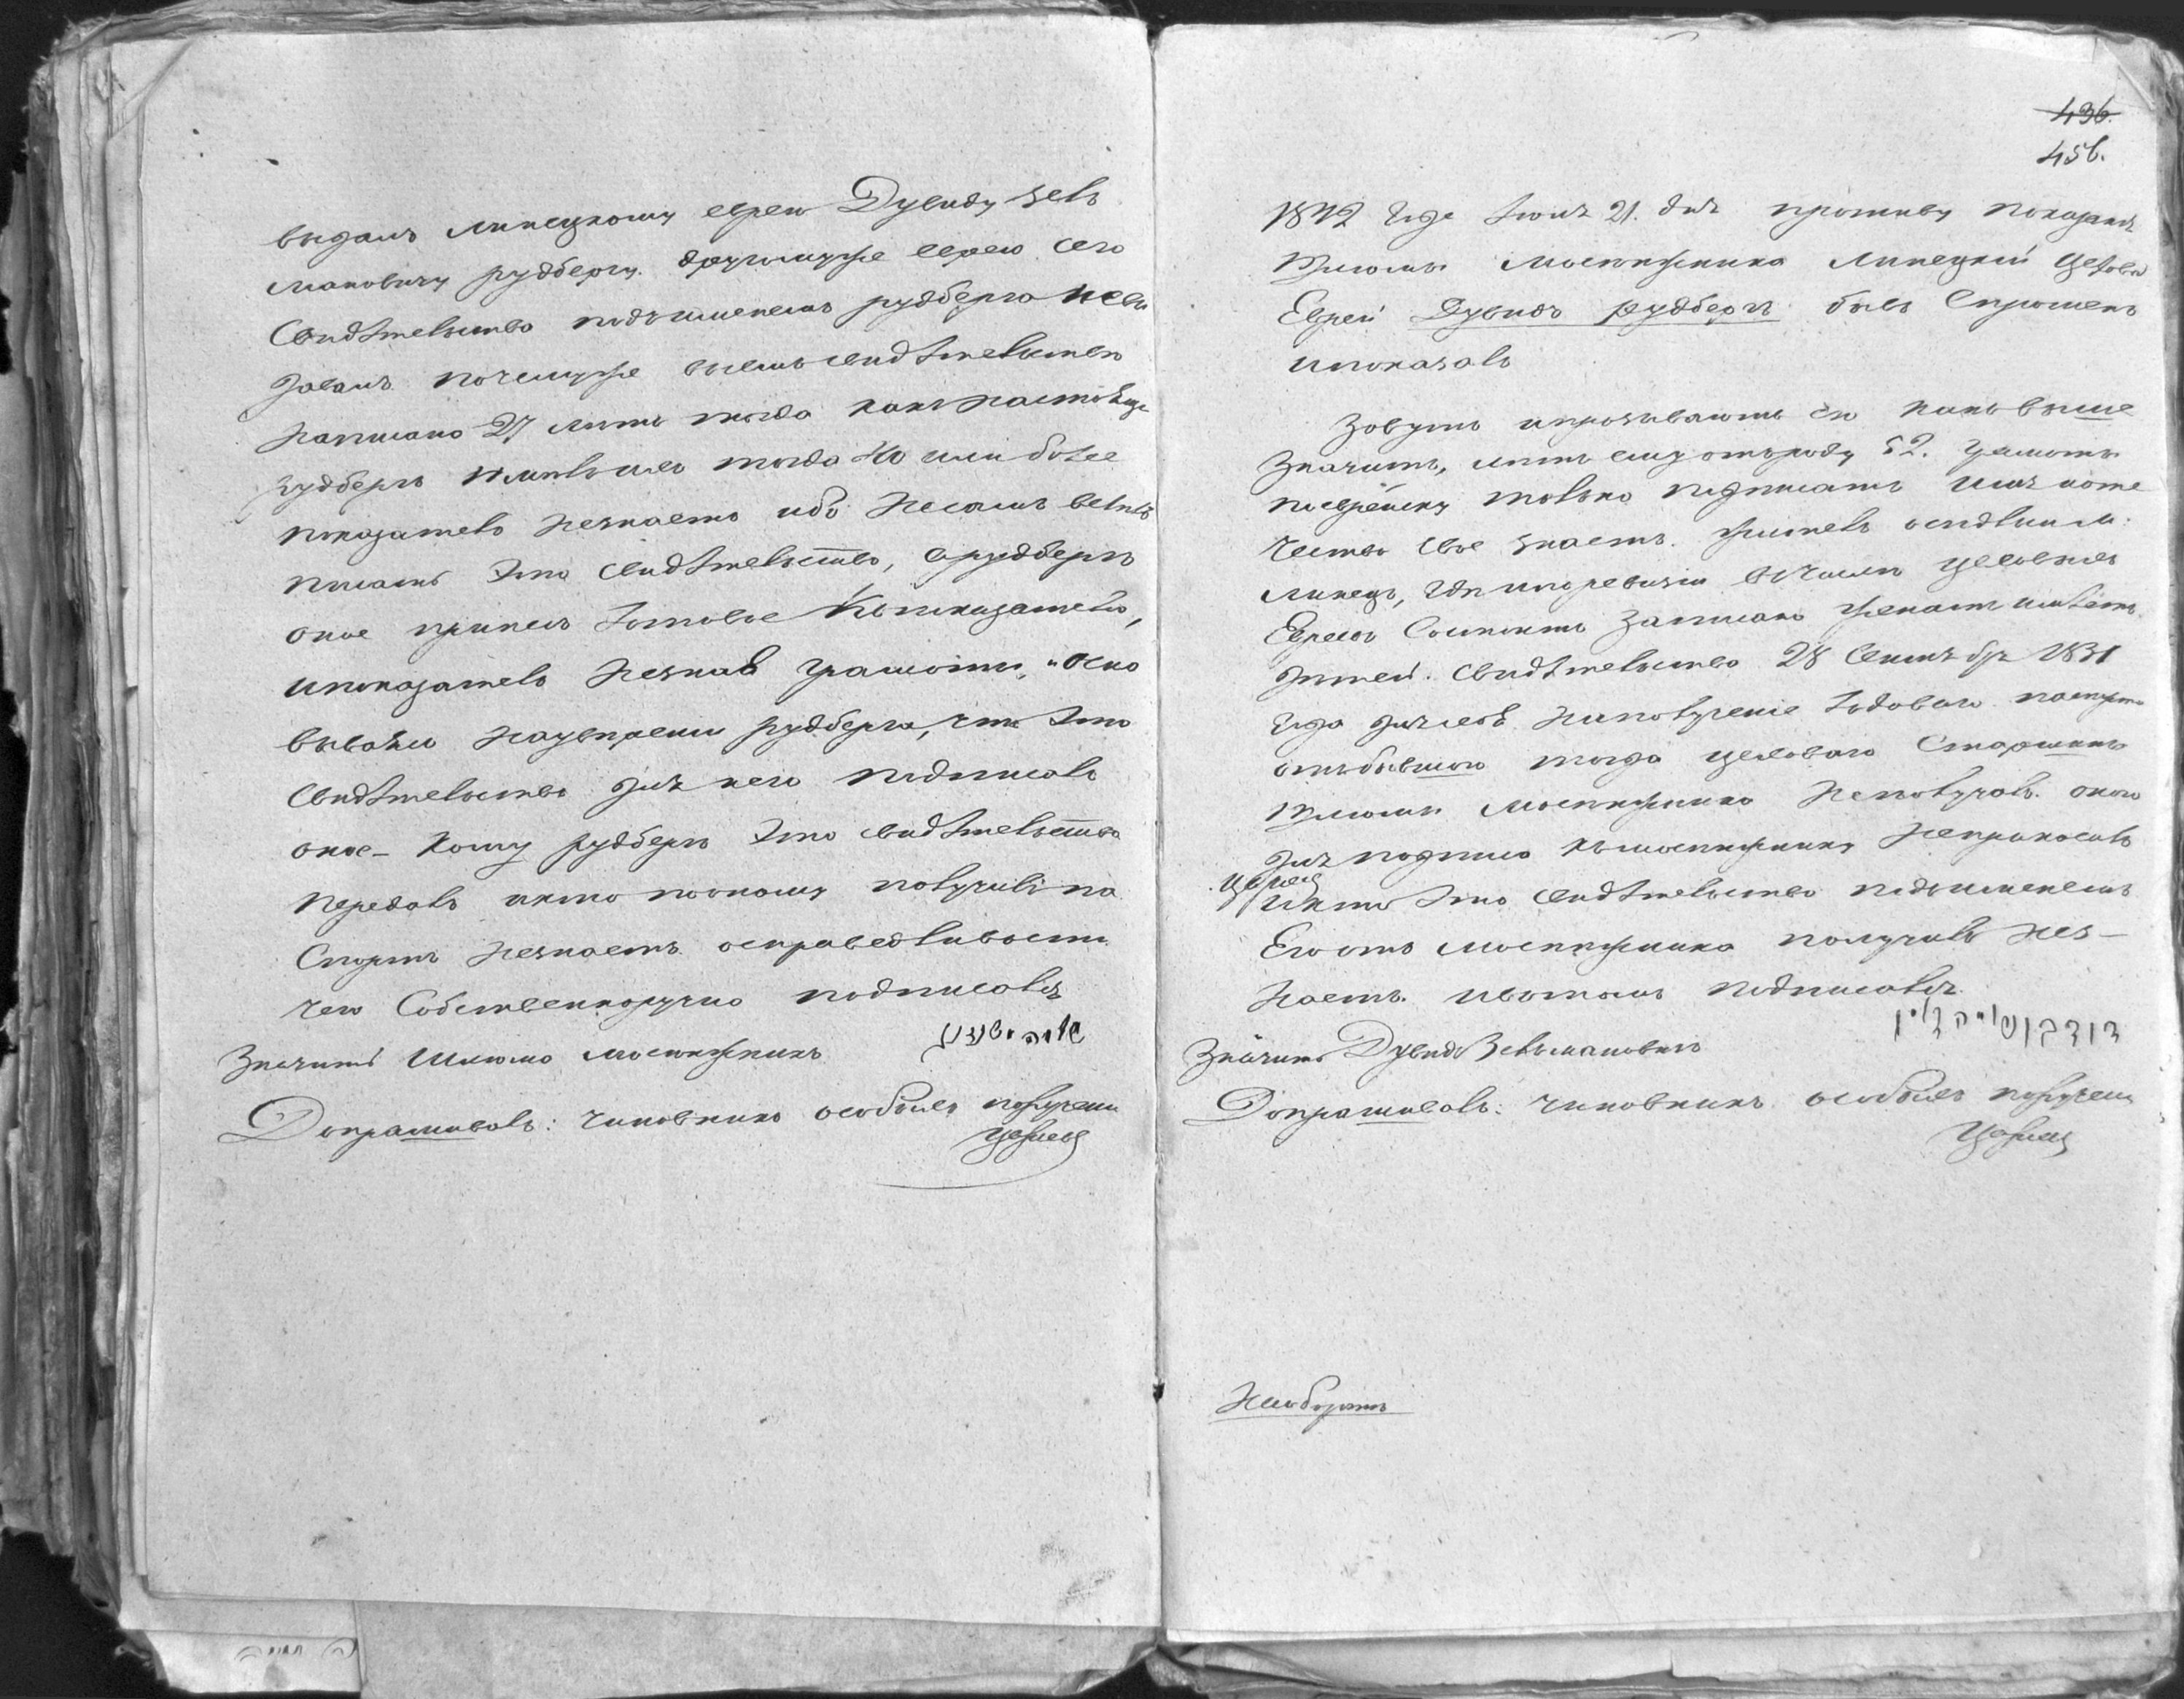 выдалъ Липецкому еврею Дувиду Зель
мановичу рудбергу. другомужѣ еврею сего
Свидѣтельства подъименемъ рудберга невы
давалъ почемужѣ въсемъ свидѣтельствѣ
написано 27 лѣтъ тогда какъ настоящи
рудбергъ имѣлъ тогда 40 или более
показатель незнаетъ ибо несамъ велѣлъ
писать это свидѣтельство, а рудбергъ
оное принесъ готовое къ показателю,
ипоказатель незная грамоты, и осно
вываясь наувѣреніи рудберга, что это
свидѣтельство для него подписалъ
оное - кому рудбергъ это свидѣтельство
передалъ икто поономъ получилъ па
спортъ незнаетъ. осправедливости
чего Собственноручно подписался
Значитъ Шлюма Мостижникъ
Допрашивалъ: Чиновникъ особыхъ поручени
436.
456.
1842 Года Іюня 21. дня противу показанія
Шлюмы Мостижника Липецкій Цеховы
Еврей Дувидъ рудбергъ былъ Спрошенъ
ипоказалъ
Зовутъ ипрозываютъ его какъ выше
Значитъ, лѣтъ ему отъроду 52. грамоты
поеврейску только подписать имя иоте
чество свое знаетъ. житель осѣдлый м:
Липецъ, гдѣ поревизіи вчислѣ цеховыхъ
Евреевъ Состоитъ Записанъ женатъ имѣетъ
дѣтей. Свидѣтельство 28 Сентября 1831
года наполученіе годоваго паспорта
отъбывшаго тогда цеховаго Старшины
Шлюмы Мостижника Неполучалъ. оного
для подписа къмостижнику Неприносилъ
икто это Свидѣтельство подъименемъ
Его отъ мостижника получилъ нез-
наетъ. ивтомъ подписался.
Значитъ Дувидъ Зельмановичъ
Допрашивалъ: Чиновникъ особыхъ поручені
Наоборотъ